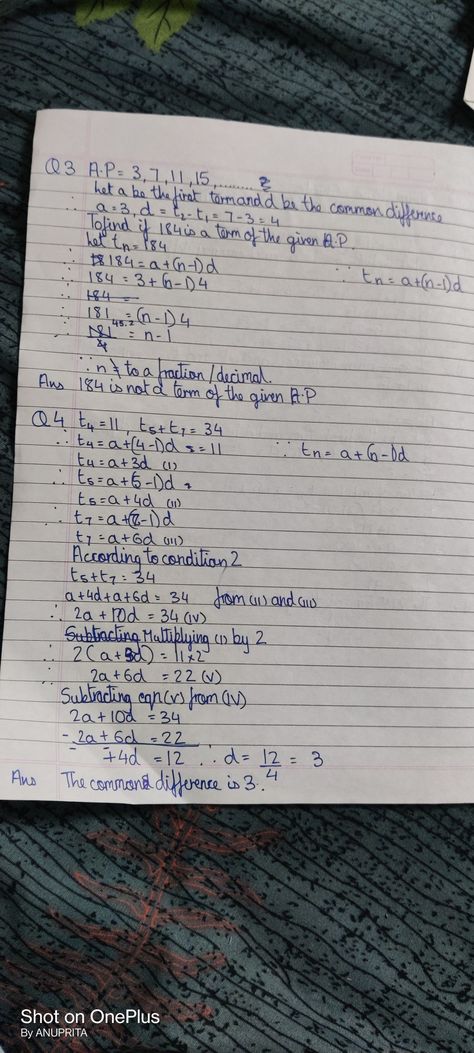 Q3 A.P = 3, 7, 11, 15, ......... ?
Let a be the first term and d be the common difference
∴ a = 3, d = t₂ - t₁ = 7 - 3 = 4
To find if 184 is a term of the given A.P.
Let tn = 184
∴ 184 = a + (n-1)d ∵ tn = a + (n-1)d
∴ 184 = 3 + (n-1)4
∴ 184 =
∴ 181 = (n-1)4
∴ 181/4 45.2 = n-1
∵ n ≠ to a fraction/decimal.
Ans 184 is not a term of the given A.P
Q4 t₄ = 11, t₅ + t₇ = 34
∴ t₄ = a + (4-1)d = 11 ∵ tn = a + (n-1)d
t₄ = a + 3d (I)
∴ t₅ = a + (5-1)d
t₅ = a + 4d (II)
∴ t₇ = a + (7-1)d
t₇ = a + 6d (III)
According to condition 2
t₅ + t₇ = 34
a + 4d + a + 6d = 34 from (II) and (III)
∴ 2a + 10d = 34 (IV)
Subtracting Multiplying (I) by 2
∴ 2(a + 3d) = 11 × 2
∴ 2a + 6d = 22 (V)
Subtracting eqn (V) from (IV)
2a + 10d = 34
- 2a + 6d = 22
+4d = 12 ∴ d = 12/4 = 3
Ans The common difference is 3.
Shot on OnePlus
By ANUPRITA